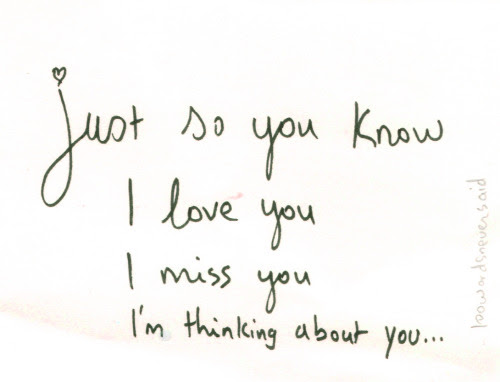 Just so you know
I love you
I miss you
I'm thinking about you...